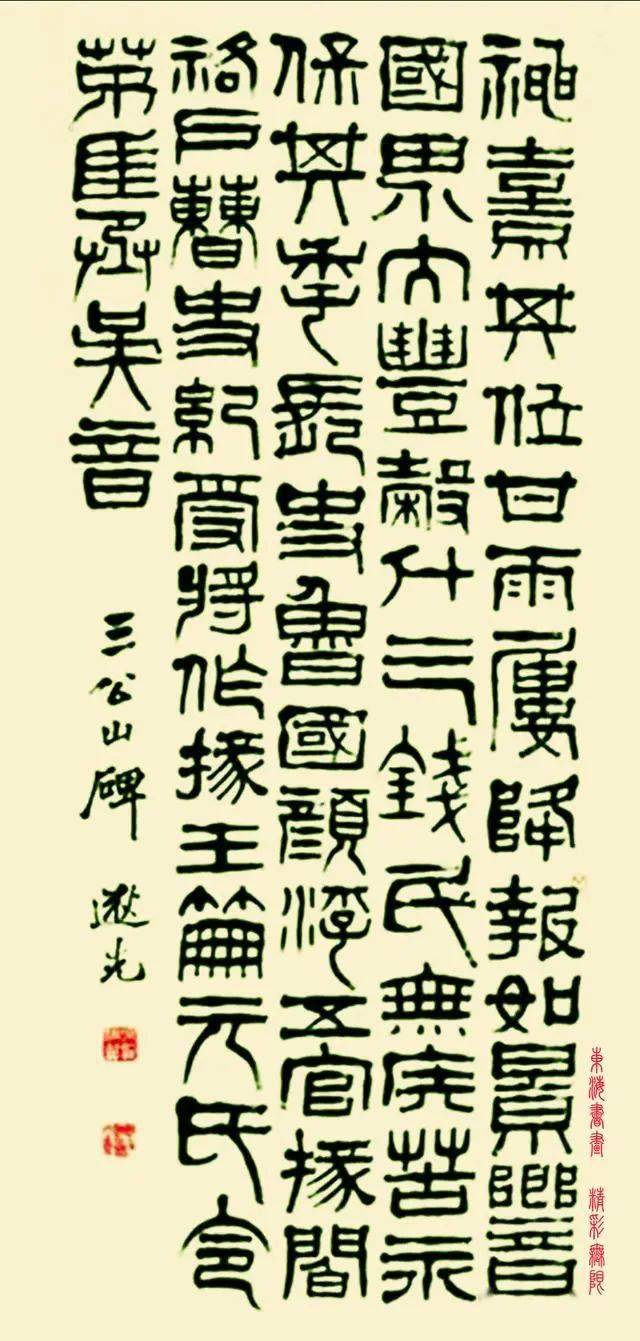 神熹其位甘雨屢降報如景響
國界大豐穀斗三錢民無疾苦永
保其年長史魯國顏浮五官掾閻
祐戶曹史紀受將作掾王笧元氏令
茅厓丞吳音
三公山碑
東海書畫 精彩無限